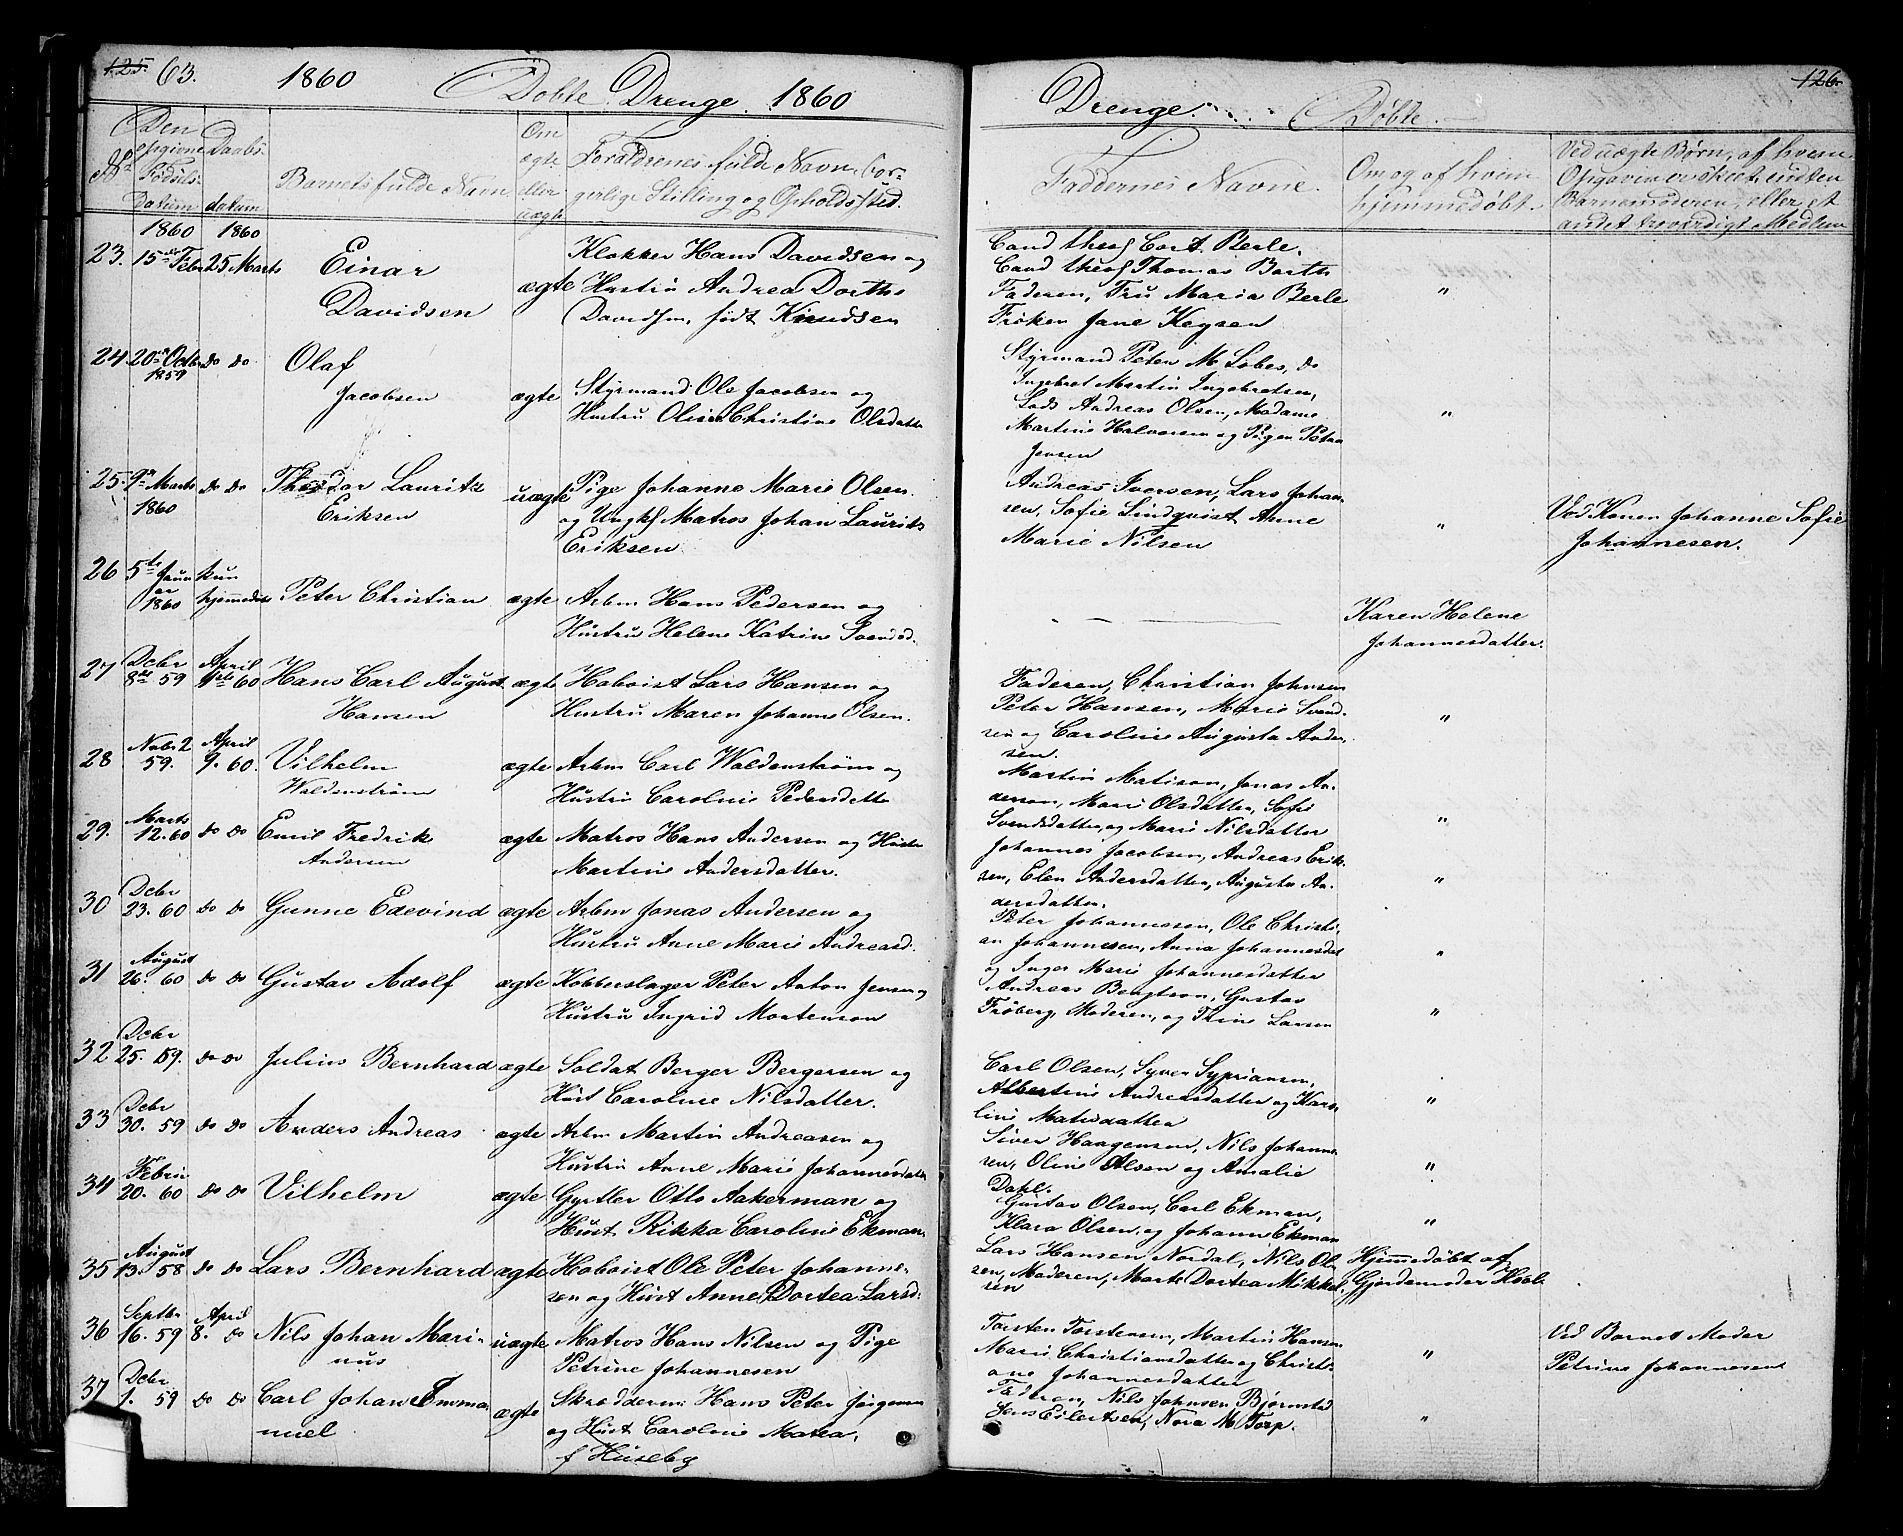 125. 63. 1860 Døbte Drenge. 1860
No
Den opgivne Fødsels-datum
Daabs-datum
Barnets fulde Navn.
Om ægte eller uægte
Forældrenes fulde Navn, borgerlige Stilling og Opholdssted.
1860 1860
23. 15de Febr 25 Marts Einar
Davidsen
ægte
Klokker Hans Davidsen og
Hustru Andrea Dorthe
Davidsen, født Knudsen
24. 20de Octbr 1859 do do Olaf
Jacobsen
ægte
Styrmand Ole Jacobsen og
Hustru Oline Christine Olsdatter
25. 9de Marts 1860 do do Theodor Lauritz
Eriksen
uægte
Pige Johanne Marie Olsen
og Ungkl Matros Johan Laurits
Eriksen
26 5te Januar 1860 kun hjemmedøbt Peter Christian ægte
Arbm Hans Pedersen og
Hustru Helene Katrine Svendsd.
27 Dcbr 8de 59 April 60 Hans Carl August
Hansen
ægte
Hoboist Lars Hansen og
Hustru Maren Johanne Olsen.
28 Nvbr 2 59. April 9. 60. Vilhelm
Waldenstrøm
ægte
Arbm Carl Waldenstrøm og
Hustru Caroline Pedersdatter
29. Marts 12. 60 do do Emil Fredrik
Andersen
ægte
Matros Hans Andersen og Hustru
Martine Andersdatter.
30 Dcbr 23. 60 do do Gunne Edevind ægte
Arbm Jonas Andersen og
Hustru Anne Marie Andreasd.
31 August 26. 60 do do Gustav Adolf ægte
Kobberslager Peter Anton Jensen og
Hustru Ingrid Mortenson
32 Dcbr 25. 59. do do Julius Bernhard ægte
Soldat Berger Bergersen og
Hust Caroline Nilsdatter.
33 Dcbr 30. 59 do do Anders Andreas ægte
Arbm Martin Andreasen og
Hustru Anne Marie Johannesdatter
34 Febru 20. 60 do do Vilhelm ægte
Gyrtler Otto Aakerman og
Hust Rikka Caroline Ekman
35 August 13. 58 do do Lars Bernhard ægte
Hoboist Ole Peter Johanne-
sen og Hust Anne Dortea Larsd.
36 Septbr 16. 59 April 8. do Nils Johan Mari-
nus
uægte
Matros Hans Nilsen og Pige
Petrine Johannesen
37 Dcbr 1. 59 do do Carl Johan Emma
nuel
ægte
Skrædderm. Hans Peter Jørgensen
og Hust Caroline Matea,
f Huseby
Drenge. Døbte. 126.
Faddernes Navne.
Om og af hvem
hjemmedøbt.
Ved uægte Børn, af hvem
Opgaven er skeet, uden
Barnemoderen, eller et
andet troværdigt Medlem
Cand theol Cort. Berle.
Cand theol Thomas Barth
Faderen, Fru Maria Berle
Frøken Jane Keysen
"
Styrmand Peter M. Lobes, do
Ingebret Martin Ingebretsen,
Lods Andreas Olsen, Madame
Martine Halvorsen og Pigen Petra
Jensen
"
Andreas Iversen, Lars Johan-
sen, Sofie Lindqvist Anne
Marie Nilsen
"
Ved Konen Johanne Sofie
Johannesen.
Karen Helene
Johannesdatter.
Faderen, Christian Johnsen
Peter Hansen, Marie Svend-
sen og Caroline Augusta Ander-
sen.
"
Martin Matison, Jonas An-
derson, Mari Olsdatter, Sofie
Svendsdatter, og Marie Nilsdatter
"
Johannes Jacobsen, Andreas Erik-
sen, Elen Andersdatter, Augusta An-
dersdatter.
"
Peter Johannesson, Ole Christi-
an Johannesen, Anna Johannesdat
og Inger Marie Johannesdatter
"
Andreas Bengtson, Gustav
Frøberg, Moderen, og Thine Larsen
"
Carl Olsen, Syver Syprianson,
Albertine Andreasdatter og Karo-
line Matisdatter
"
Siver Haagensen, Nils Johanne-
sen, Oline Olsen og Amalie
Dahl.
"
Gustav Olsen, Carl Ekman,
Klara Olsen, og Johanne Ekman
"
Lars Hansen Nordal, Nils Ol-
sen, Moderen, Marte Dortea Mikkel-
sen
Hjemmedøbt af
Gjordemoder Hval
Torsten Torstensen, Martin Hansen
Marie Christiansdatter og Christi-
ane Johannesdatter
"
Ved Barnets Moder
Petrine Johannesen
Faderen, Nils Johnsen Bjørnstad
Jens Eilertsen, Nora M. Torp.
"